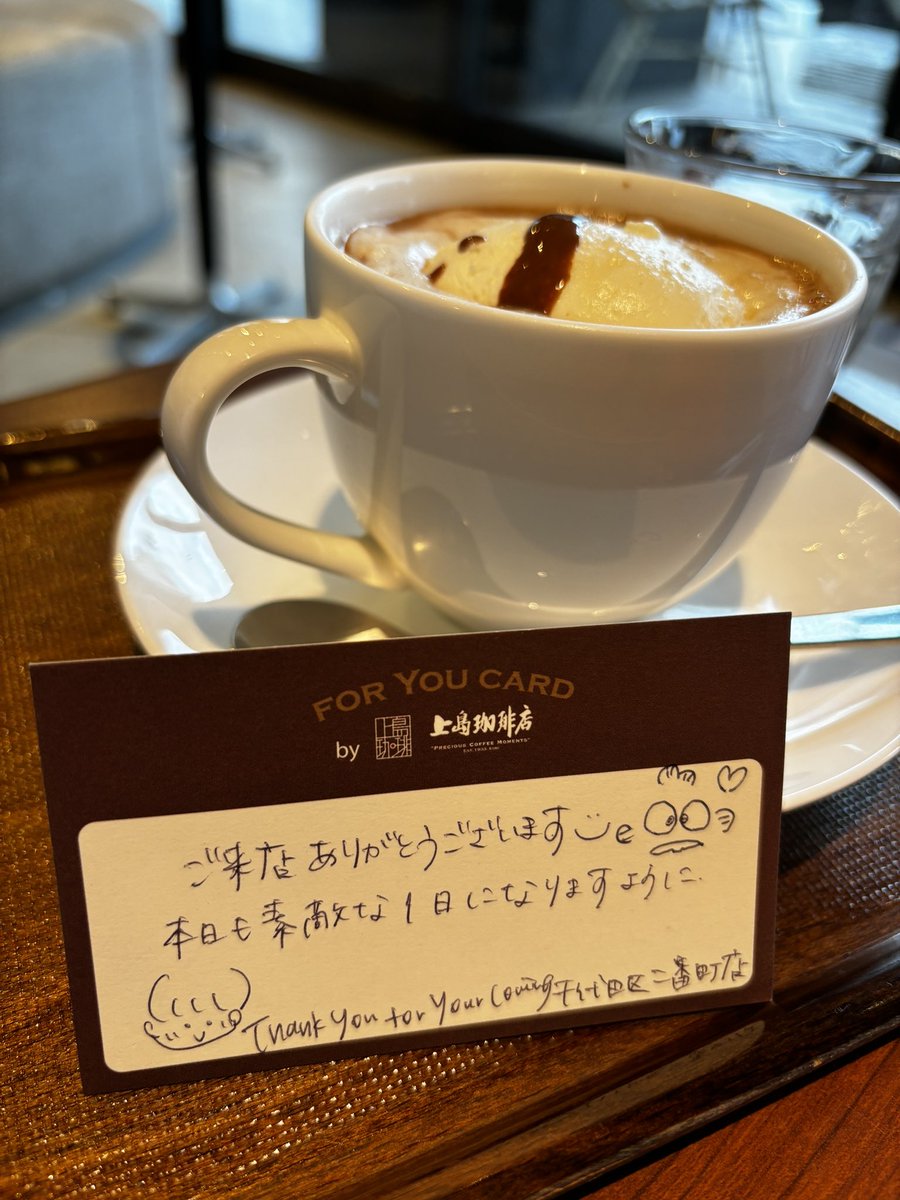 FOR YOU CARD
by 上島珈琲 上島珈琲店
"PRECIOUS COFFEE MOMENTS"
ご来店ありがとうございます
本日も素敵な1日になりますように.
Thank you for your Coming 千代田区二番町店